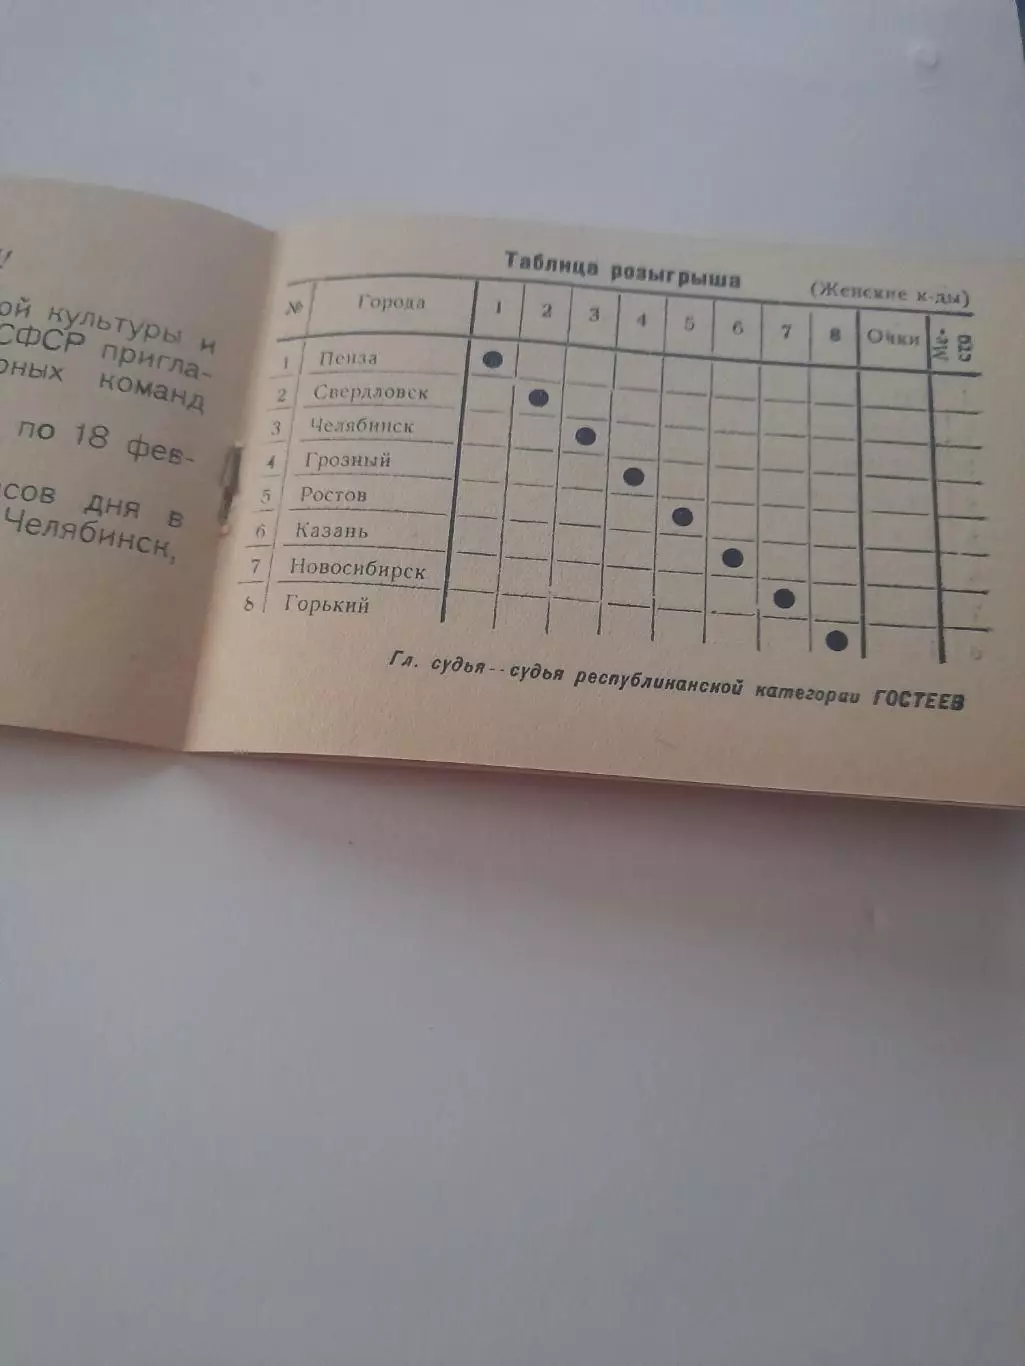 !
ой культуры и
СФСР пригла-
рных команд
по 18 фев-
сов дня в
Челябинск,
Таблица розыгрыша
(Женские к-ды)
№ Города 1 2 3 4 5 6 7 8 Очки Ме-
ста
1 Пенза
2 Свердловск
3 Челябинск
4 Грозный
5 Ростов
6 Казань
7 Новосибирск
8 Горький
Гл. судья--судья республиканской категории ГОСТЕЕВ